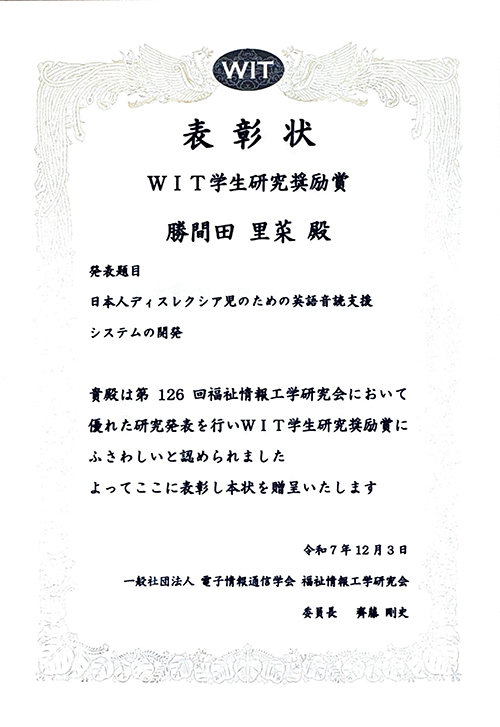 WIT
表彰状
ＷＩＴ学生研究奨励賞
勝間田 里菜 殿
発表題目
日本人ディスレクシア児のための英語音読支援
システムの開発
貴殿は第 126 回福祉情報工学研究会において
優れた研究発表を行いＷＩＴ学生研究奨励賞に
ふさわしいと認められました
よってここに表彰し本状を贈呈いたします
令和７年１２月３日
一般社団法人 電子情報通信学会 福祉情報工学研究会
委員長 齊藤 剛史